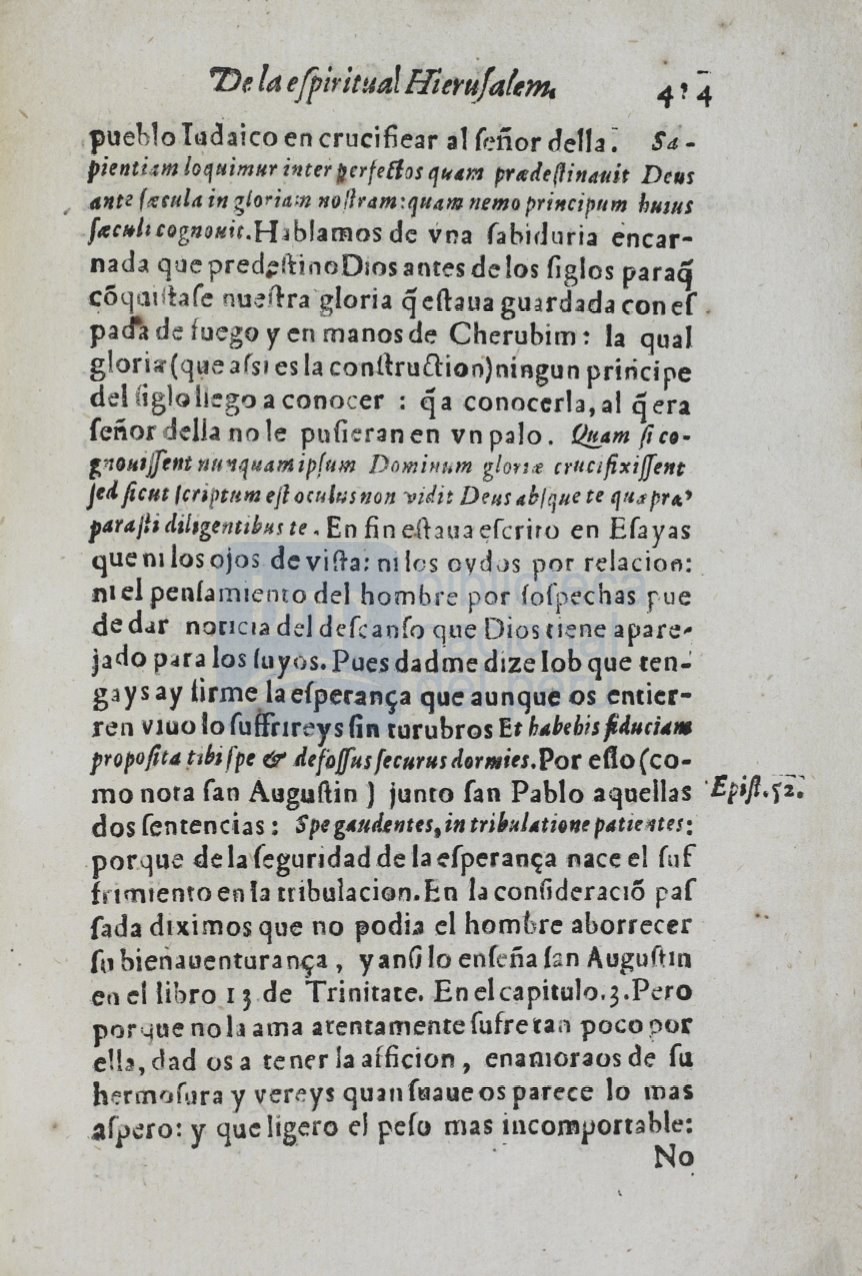 De la eſpiritual Hieruſalem. 4?4
pueblo Iudaico en crucifiear al ſeñor della. Sa-
pientiam loquimur inter perfectos quam prædeſtinauit Deus
ante ſæcula in gloriam noſtram: quam nemo principum huius
ſæculi cognouit. Hablamos de vna ſabiduria encar-
nada que predeſtino Dios antes de los ſiglos paraq̃
cõquiſtaſe nueſtra gloria q̃ eſtaua guardada con eſ
pada de fuego y en manos de Cherubim: la qual
gloria (que aſsi es la conſtruction) ningun principe
del ſiglo llego a conocer : q̃ a conocerla, al q̃ era
ſeñor della no le puſieran en vn palo. Quam ſi co-
gnouiſſent nunquam ipſum Dominum gloriæ crucifixiſſent
ſed ſicut ſcriptum eſt oculus non vidit Deus abſque te quæ præ
paraſti diligentibus te. En fin eſtaua eſcrito en Eſayas
que ni los ojos de viſta: ni los oydos por relacion:
ni el penſamiento del hombre por ſoſpechas pue
de dar noticia del deſcanſo que Dios tiene apare-
jado para los ſuyos. Pues dadme dize Iob que ten-
gays ay firme la eſperança que aunque os entier-
ren viuo lo ſuffrireys ſin turubros Et habebis fiduciam
propoſita tibi ſpe & defoſſus ſecurus dormies. Por eſſo (co-
mo nota ſan Auguſtin ) junto ſan Pablo aquellas
Epiſt. 52.
dos ſentencias: Spe gaudentes, in tribulatione patientes:
porque de la ſeguridad de la eſperança nace el ſuf
frimiento en la tribulacion. En la conſideraciõ paſ
ſada diximos que no podia el hombre aborrecer
ſu bienauenturança, y anſi lo enſeña ſan Auguſtin
en el libro 13 de Trinitate. En el capitulo. 3. Pero
porque no la ama atentamente ſufre tan poco por
ella, dad os a tener la afficion, enamoraos de ſu
hermoſura y vereys quan ſuaue os parece lo mas
aſpero: y que ligero el peſo mas incomportable:
No